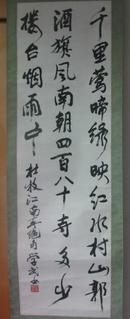 千里莺啼绿映红水村山郭
酒旗风南朝四百八十寺多少
楼台烟雨中 杜牧江南春绝句 学武书